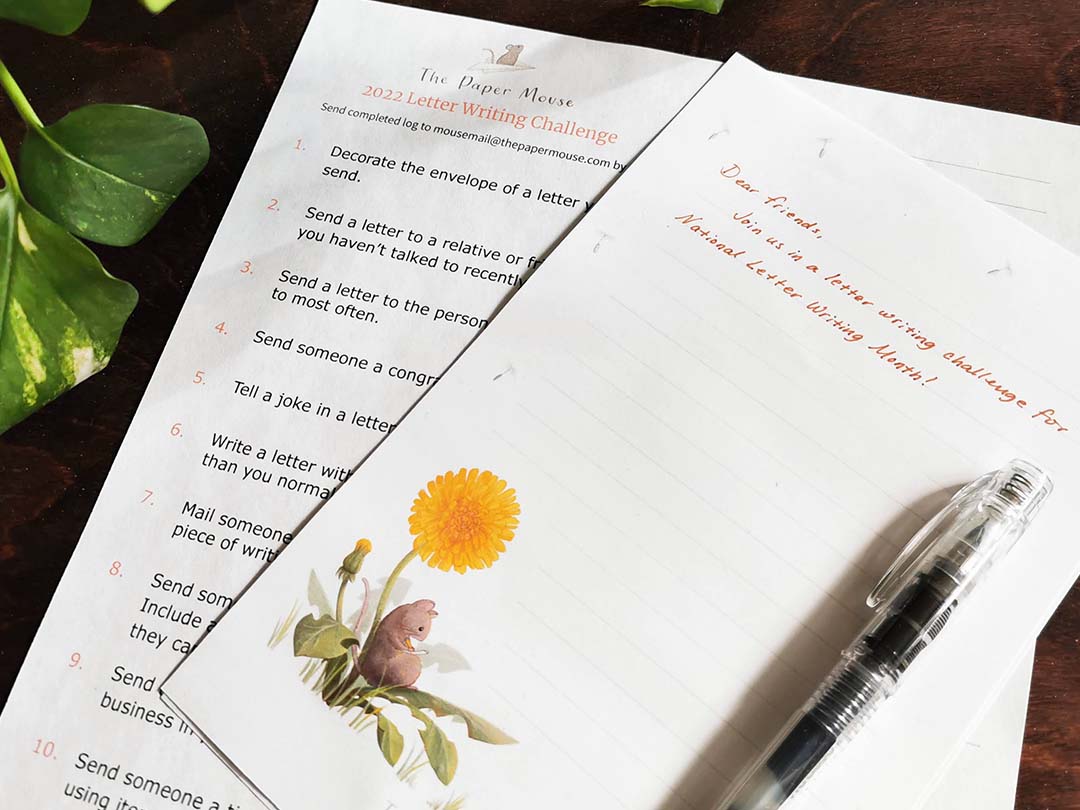 The Paper Mouse
2022 Letter Writing Challenge
Send completed log to mousemail@thepapermouse.com by
1. Decorate the envelope of a letter
send.
2. Send a letter to a relative or
you haven't talked to recently
3. Send a letter to the person
to most often.
4. Send someone a
5. Tell a joke in a letter
6. Write a letter
than you
7. Mail someone
piece of
8. Send
Include
they
9. Send
business
10. Send someone a
using
Dear friends,
Join us in a letter writing challenge for
National Letter Writing Month!